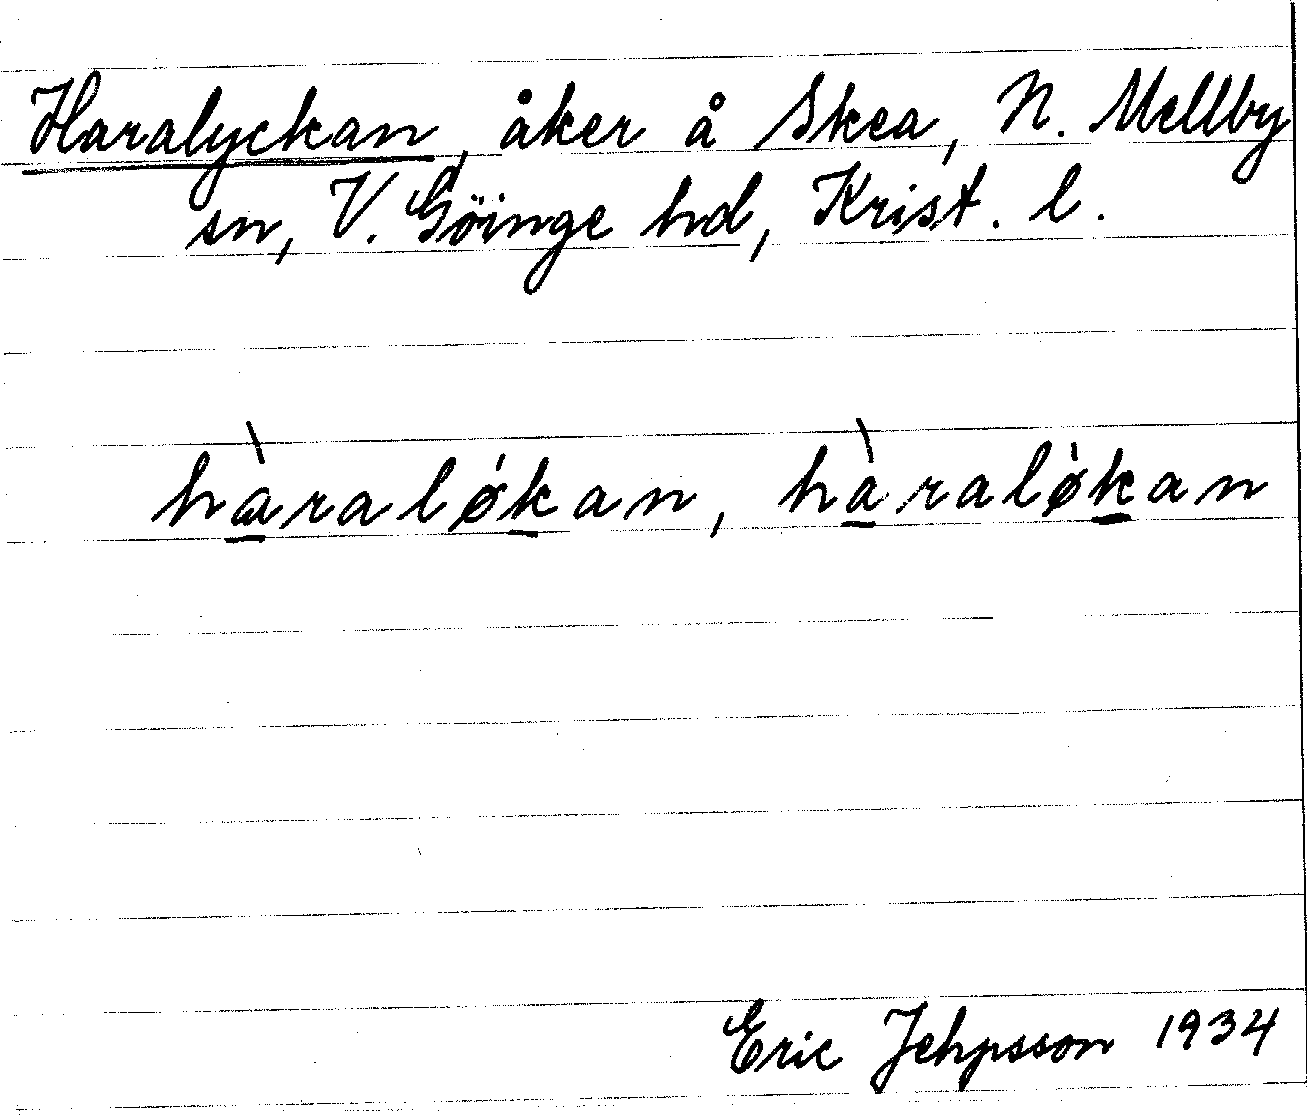 Haralyckan, åker å Skea, N. Mellby
sn, V. Göinge hd, Krist. l.
hàraløkan, hàraløkan
Eric Jehpsson 1934